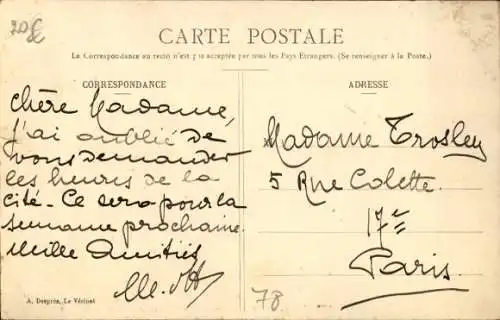 20€
CARTE POSTALE
La Correspondance au recto n'est pas acceptée par tous les Pays Etrangers. (Se renseigner à la Poste.)
CORRESPONDANCE
ADRESSE
Chère Madame,
j'ai oublié de
vous demander
les heures de la
cité. Ce sera pour la
semaine prochaine.
Mille Amitiés
Madame Trosley
5 Rue Colette
17e
Paris
A. Desprée, Le Vésinet
78